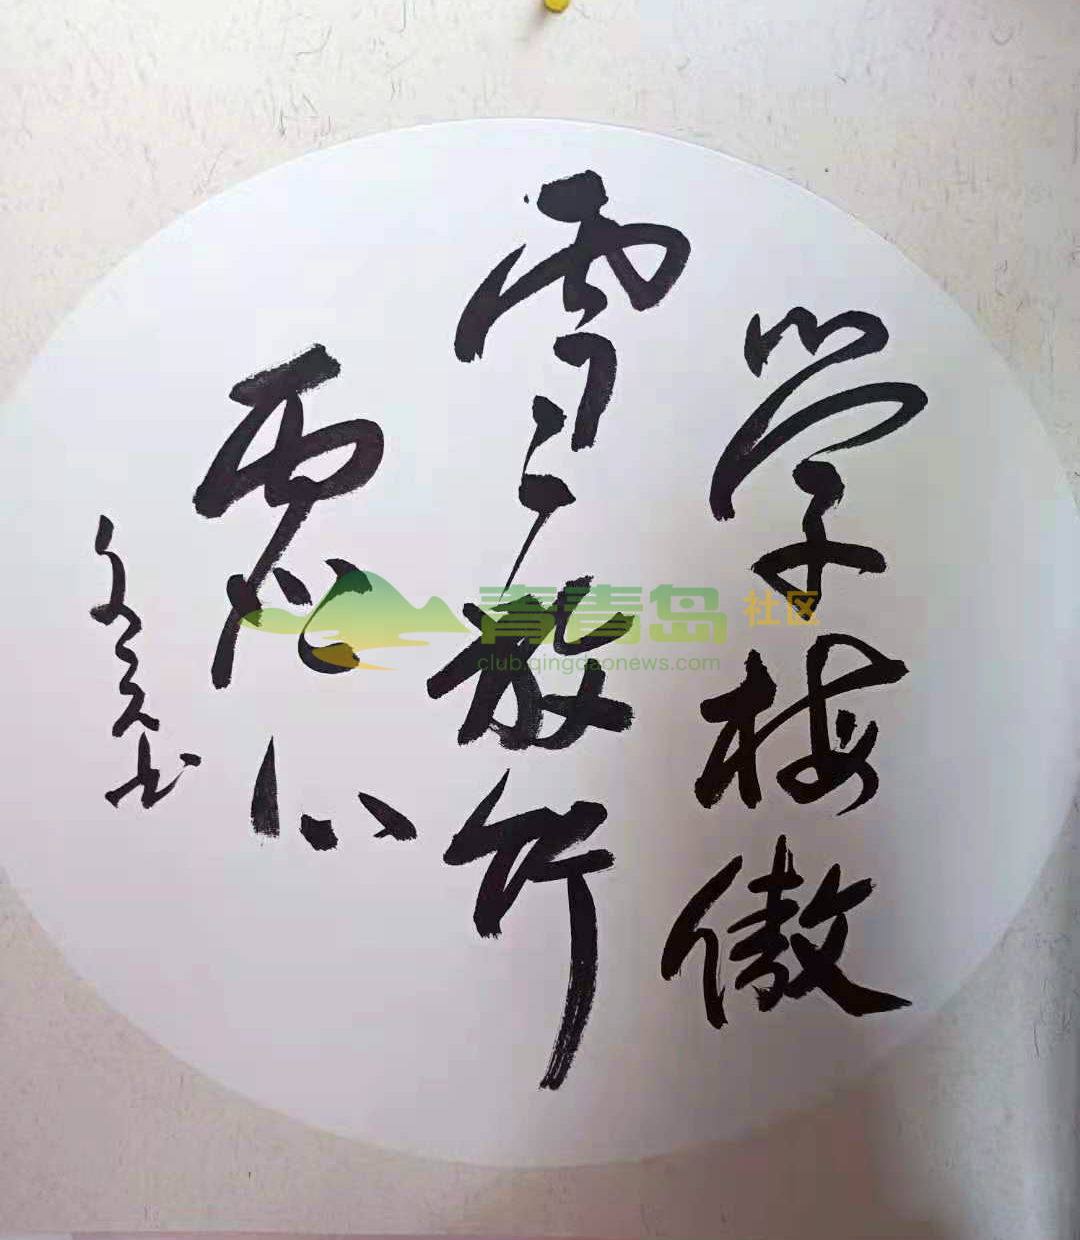 学梅傲
雪效竹
虚心
书
青青岛 社区
club.qingdaonews.com